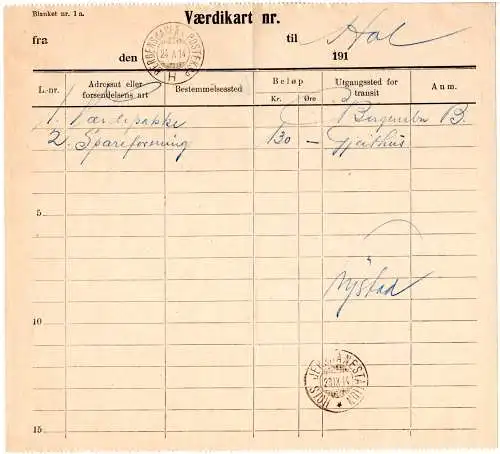 Blanket nr. 1 a.
Værdikart nr.
fra til Hol
den 191
BERGENSBANENS POSTEKSP. 24 X 14 H
L.-nr. Adressat eller forsendelsens art Bestemmelsessted Beløp Kr. Øre Utgangssted for transit Anm.
1. Værdipakke Bergensbn B.
2. Spareforening 130 — Gjeithus
5
Nystad
10
HOLS JERNBANESTATION 14
15